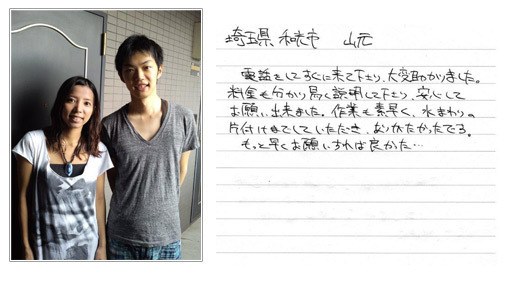 埼玉県 和光市 山元
電話をしてすぐに来て下さり、大変助かりました。
料金も分かり易く説明して下さり、安心して
お願い出来ました。作業も素早く、水まわりの
片付けまでしていただき、ありがたかったです。
もっと早くお願いすれば良かた…